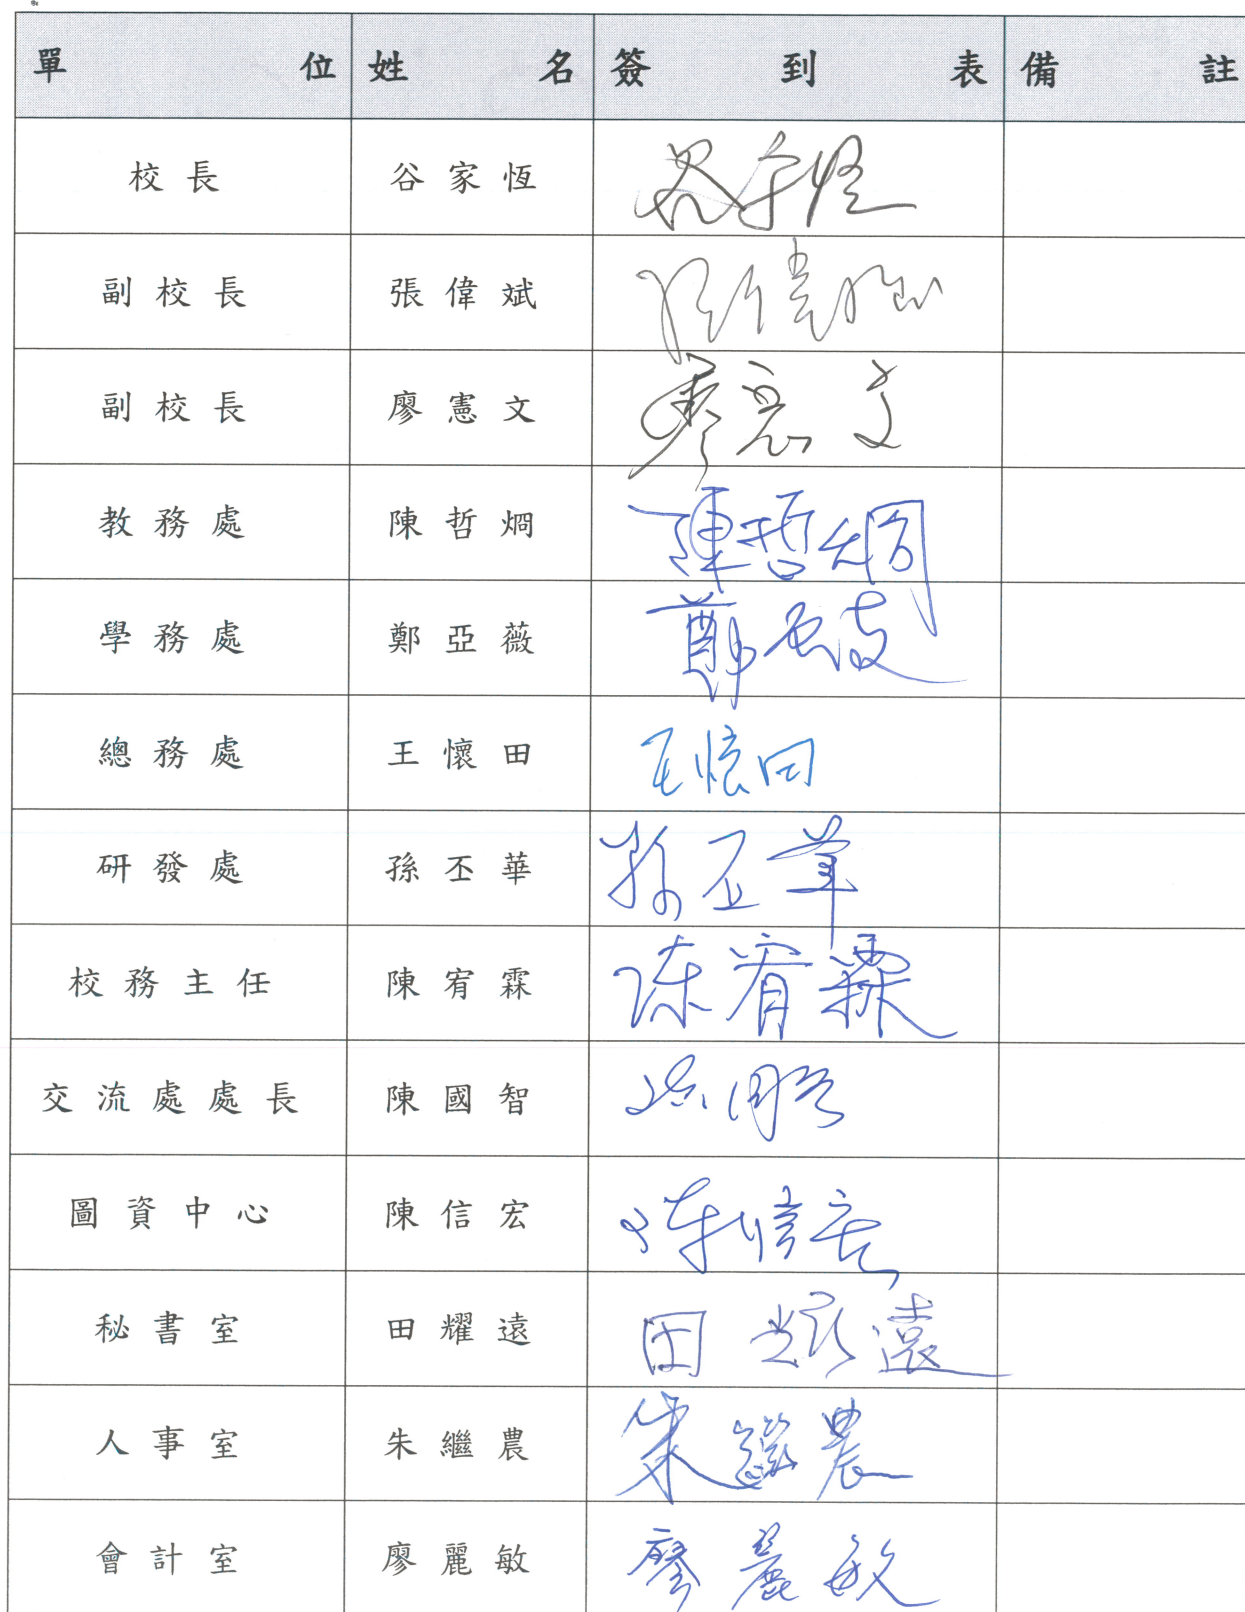 單位 姓名 簽到表 備註
校長 谷家恆 谷家恆
副校長 張偉斌 張偉斌
副校長 廖憲文 廖憲文
教務處 陳哲焵 陳哲焵
學務處 鄭亞薇 鄭亞薇
總務處 王懷田 王懷田
研發處 孫丕華 孫丕華
校務主任 陳宥霖 陳宥霖
交流處處長 陳國智 陳國智
圖資中心 陳信宏 陳信宏
秘書室 田耀遠 田耀遠
人事室 朱繼農 朱繼農
會計室 廖麗敏 廖麗敏